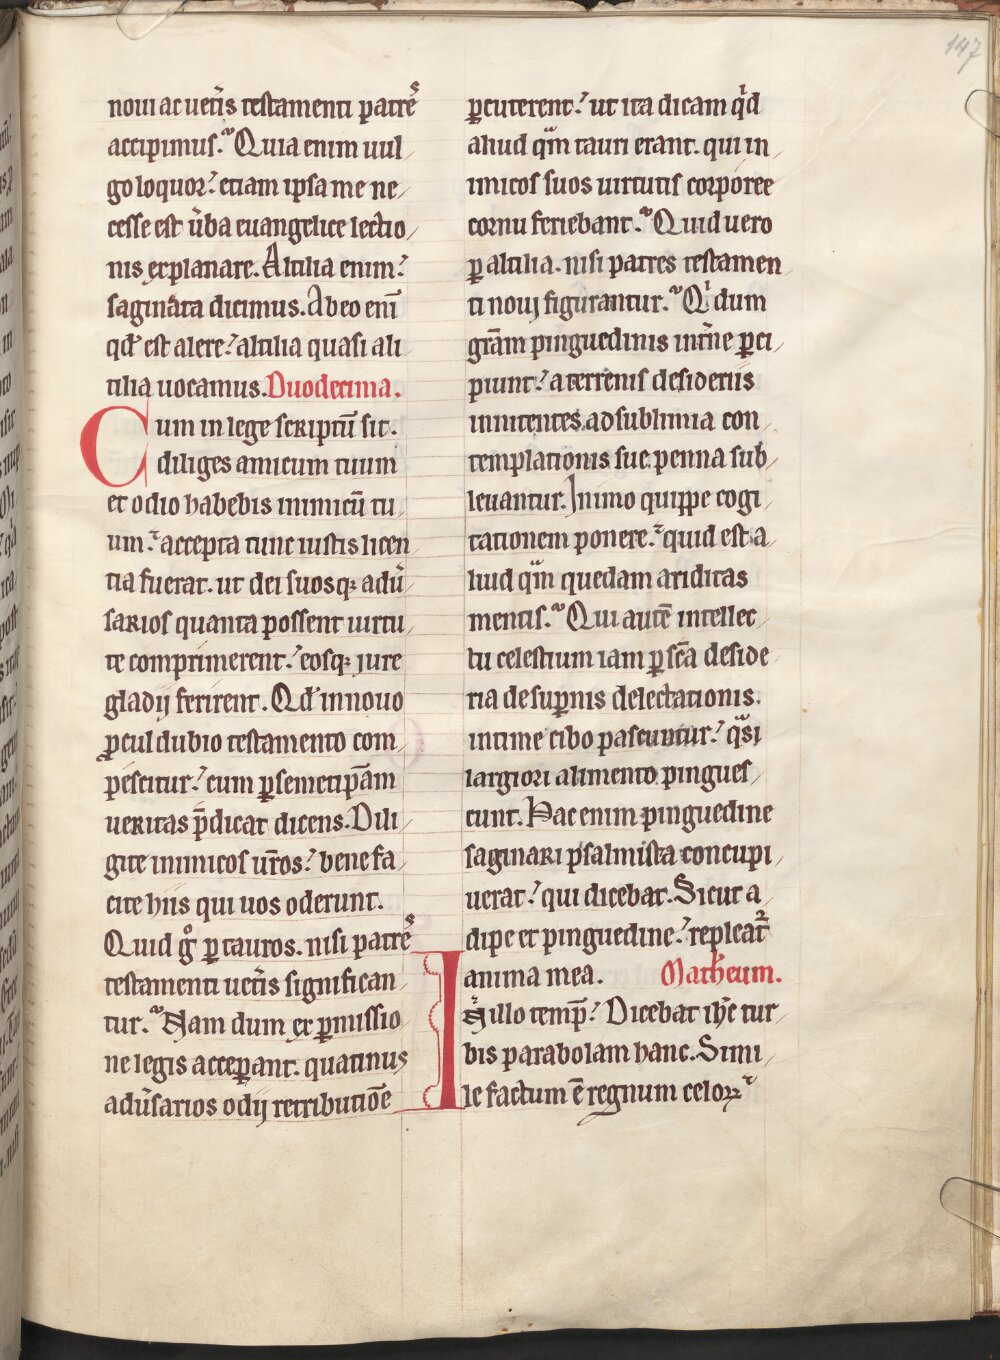 147
noui ac uet̾is testamenti patrēs
accipimus. Quia enim uul
go loquor. etiam ipsa me ne
cesse est u̾ba euangelice lectio
nis explanare. Altilia enim
saginata dicimus. Ab eo eni̅
qd̾ est alere. altilia quasi ali
tilia uocamus. Duodecima.
Cum in lege scriptu̅ sit.
diliges amicum tuum
et odio habebis inimicu̅ tu
um. accepta tunc iustis licen
tia fuerat. ut dei suosqꝫ adu̾
sarios quanta possent uirtu
te comprimerent. eosqꝫ iure
gladij ferirent. Qd̾ in nouo
ꝓcul dubio testamento com
pescitur. cum ꝑ semetip̅am
ueritas p̅dicat dicens. Dili
gite inimicos ur̅os. bene fa
cite hiis qui uos oderunt.
Quid gͦ ꝑ tauros. nisi patrēs
testamenti uet̾is significan
tur. Nam dum ex ꝑmissio
ne legis acceꝑant. quatinus
adu̾sarios odij retributio̅e
ꝑcuterent. ut ita dicam qͥd
aliud qͣ̅ tauri erant. qui in
imicos suos uirtutis corporee
cornu feriebant. Quid uero
ꝑ altilia. nisi patres testamen
ti noui figurantur. Qͥ dum
gr̅am pinguedinis int̾ne ꝑci
piunt. a terrenis desideriis
innitentes. ad sublimia con
templationis sue penna sub
leuantur. In imo quippe cogi
tationem ponere. quid est a
liud qͣ̅ quedam ariditas
mentis. Qui aute̅ intellec
tu celestium iam ꝑ sc̅a deside
ria de suꝑnis delectationis.
intime cibo pascuntur. qͣsi
largiori alimento pingues
cunt. Hac enim pinguedine
saginari psalmista concupi
uerat. qui dicebat. Sicut a
dipe et pinguedine. repleat̾
anima mea. Matheum.
In illo temp̅. Dicebat ih̅c tur
bis parabolam hanc. Simi
le factum e̅ regnum celoꝝ